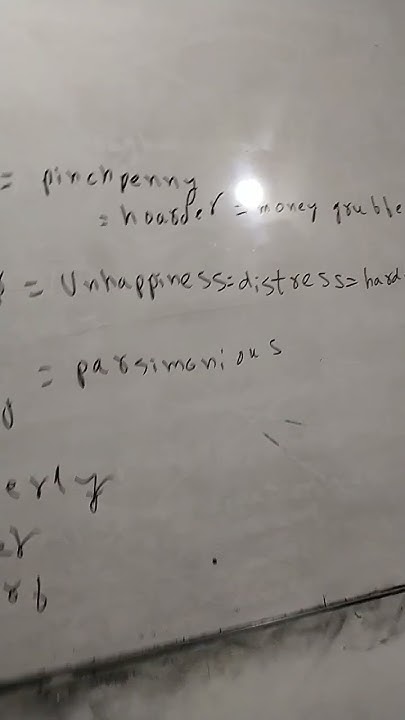 = pinchpenny
= hoarder = money gruble
= Unhappiness=distress=hard
= parsimonious
erly
er
rb